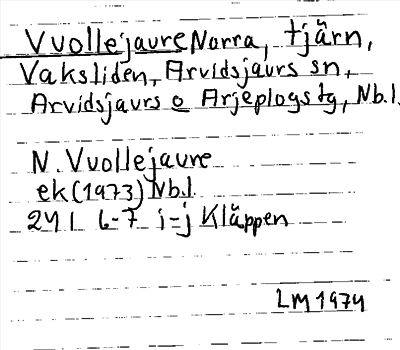 Vuollejaure Norra, tjärn,
Vaksliden, Arvidsjaurs sn,
Arvidsjaurs o Arjeplogs tg, Nb.l.
N. Vuollejaure
ek (1973) Nb.l.
24 I 6-7 i-j Kläppen
LM 1974